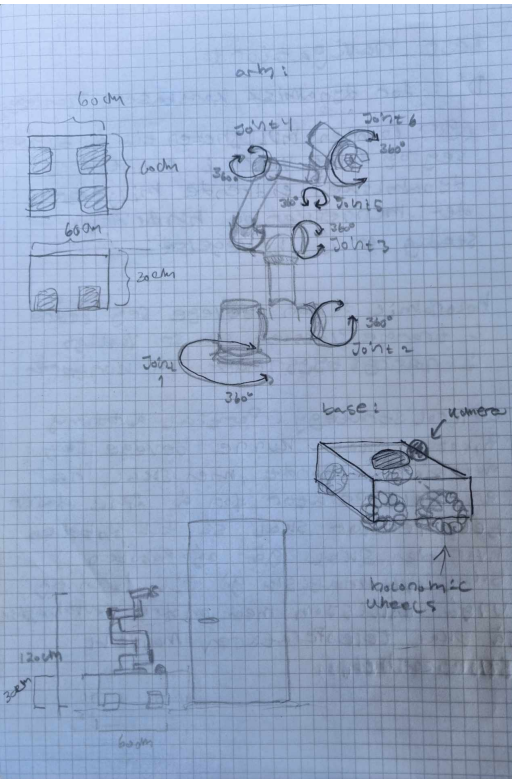 arm:
60cm
60cm
60cm
20cm
Joint 4
360°
Joint 6
360°
360°
Joint 5
360°
Joint 3
360°
Joint 2
Joint 1
360°
base:
kamera
holonomic
wheels
120cm
30cm
60cm